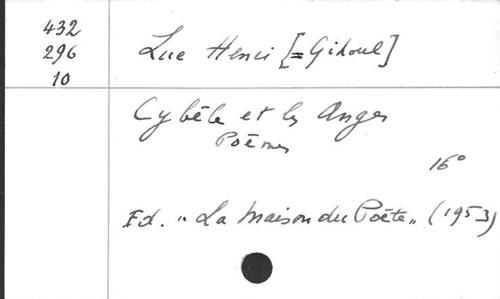 432
296
10
Luc Henri [= Gihoul]
Cybèle et les Anges
Poèmes
16°
Ed. „La Maison du Poète„ (1953)